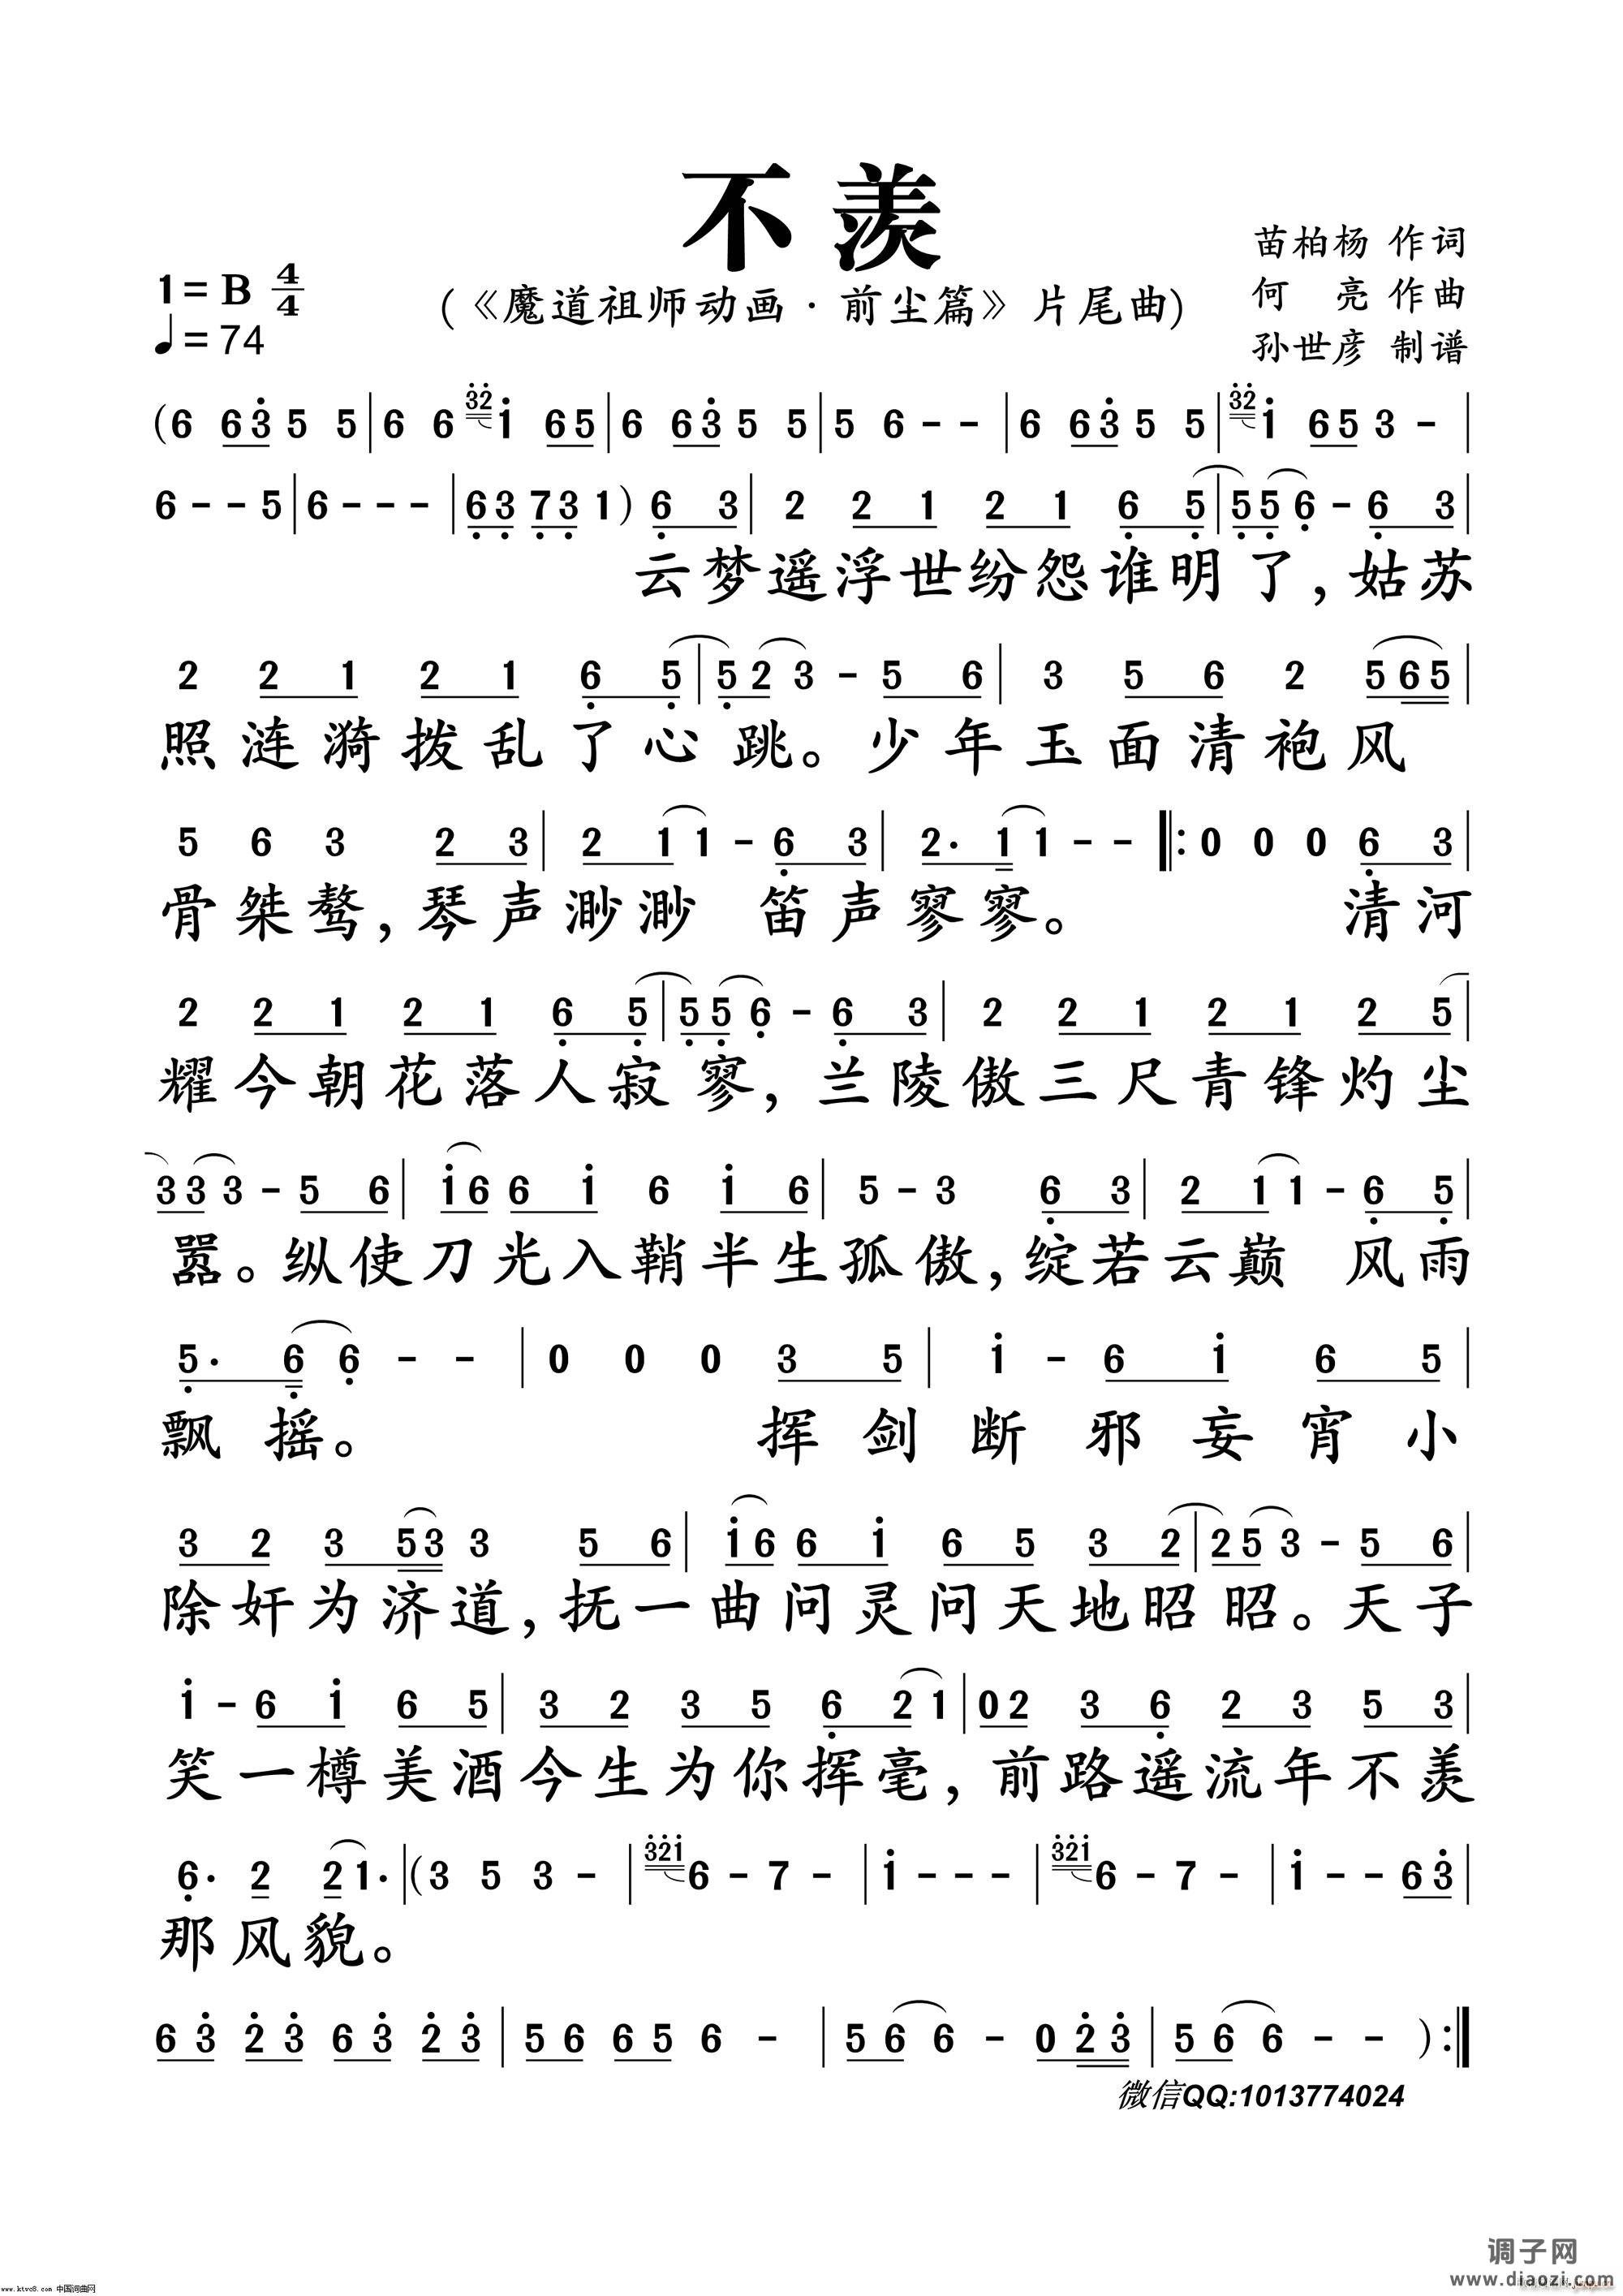 不羡
苗柏杨 作词
1=B 4/4
(《魔道祖师动画·前尘篇》片尾曲)
何 亮 作曲
♩=74
孙世彦 制谱
(6 63̇ 5 5|6 6 3̇2̇1̇ 65|6 63̇ 5 5|5 6 - -|6 63̇ 5 5|3̇2̇1̇ 65 3 -|
6 - - 5|6 - - -|6̣3̣ 7̣3̣ 1) 6̣ 3|2 2 1 2 1 6̣ 5̣|5̣5̣ 6̣ - 6̣ 3|
云梦遥浮世纷怨谁明了,姑苏
2 2 1 2 1 6̣ 5̣|5̣2 3 - 5 6|3 5 6 2 565|
照涟漪拨乱了心跳。少年玉面清袍风
5 6 3 2 3|2 1 1 - 6̣ 3|2· 1 1 - -‖:0 0 0 6̣ 3|
骨桀骜,琴声渺渺 笛声寥寥。 清河
2 2 1 2 1 6̣ 5̣|5̣5̣ 6̣ - 6̣ 3|2 2 1 2 1 2 5|
耀今朝花落人寂寥,兰陵傲三尺青锋灼尘
33 3 - 5 6|1̇6 6 1̇ 6 1̇ 6|5 - 3 6̣ 3|2 1 1 - 6̣ 5̣|
嚣。纵使刀光入鞘半生孤傲,绽若云巅 风雨
5̣· 6̣ 6̣ - -|0 0 0 3 5|1̇ - 6 1̇ 6 5|
飘摇。 挥剑断邪妄宵小
3 2 3 53 3 5 6|1̇6 6 1̇ 6 5 3 2|25 3 - 5 6|
除奸为济道,抚一曲问灵问天地昭昭。天子
1̇ - 6 1̇ 6 5|3 2 3 5 6̣ 2 1|02 3 6̣ 2 3 5 3|
笑一樽美酒今生为你挥毫,前路遥流年不羡
6̣· 2 21·|(3 5 3 -|3̇2̇1̇6 - 7 -|1̇ - - -|3̇2̇1̇6 - 7 -|1̇ - - 63̇|
那风貌。
63̇ 2̇3̇ 63̇ 2̇3̇|56 65 6 -|56 6 - 02̇3̇|56 6 - -):‖
微信QQ:1013774024
调子网
www.diaozi.com
www.ktvc8.com 中国词曲网